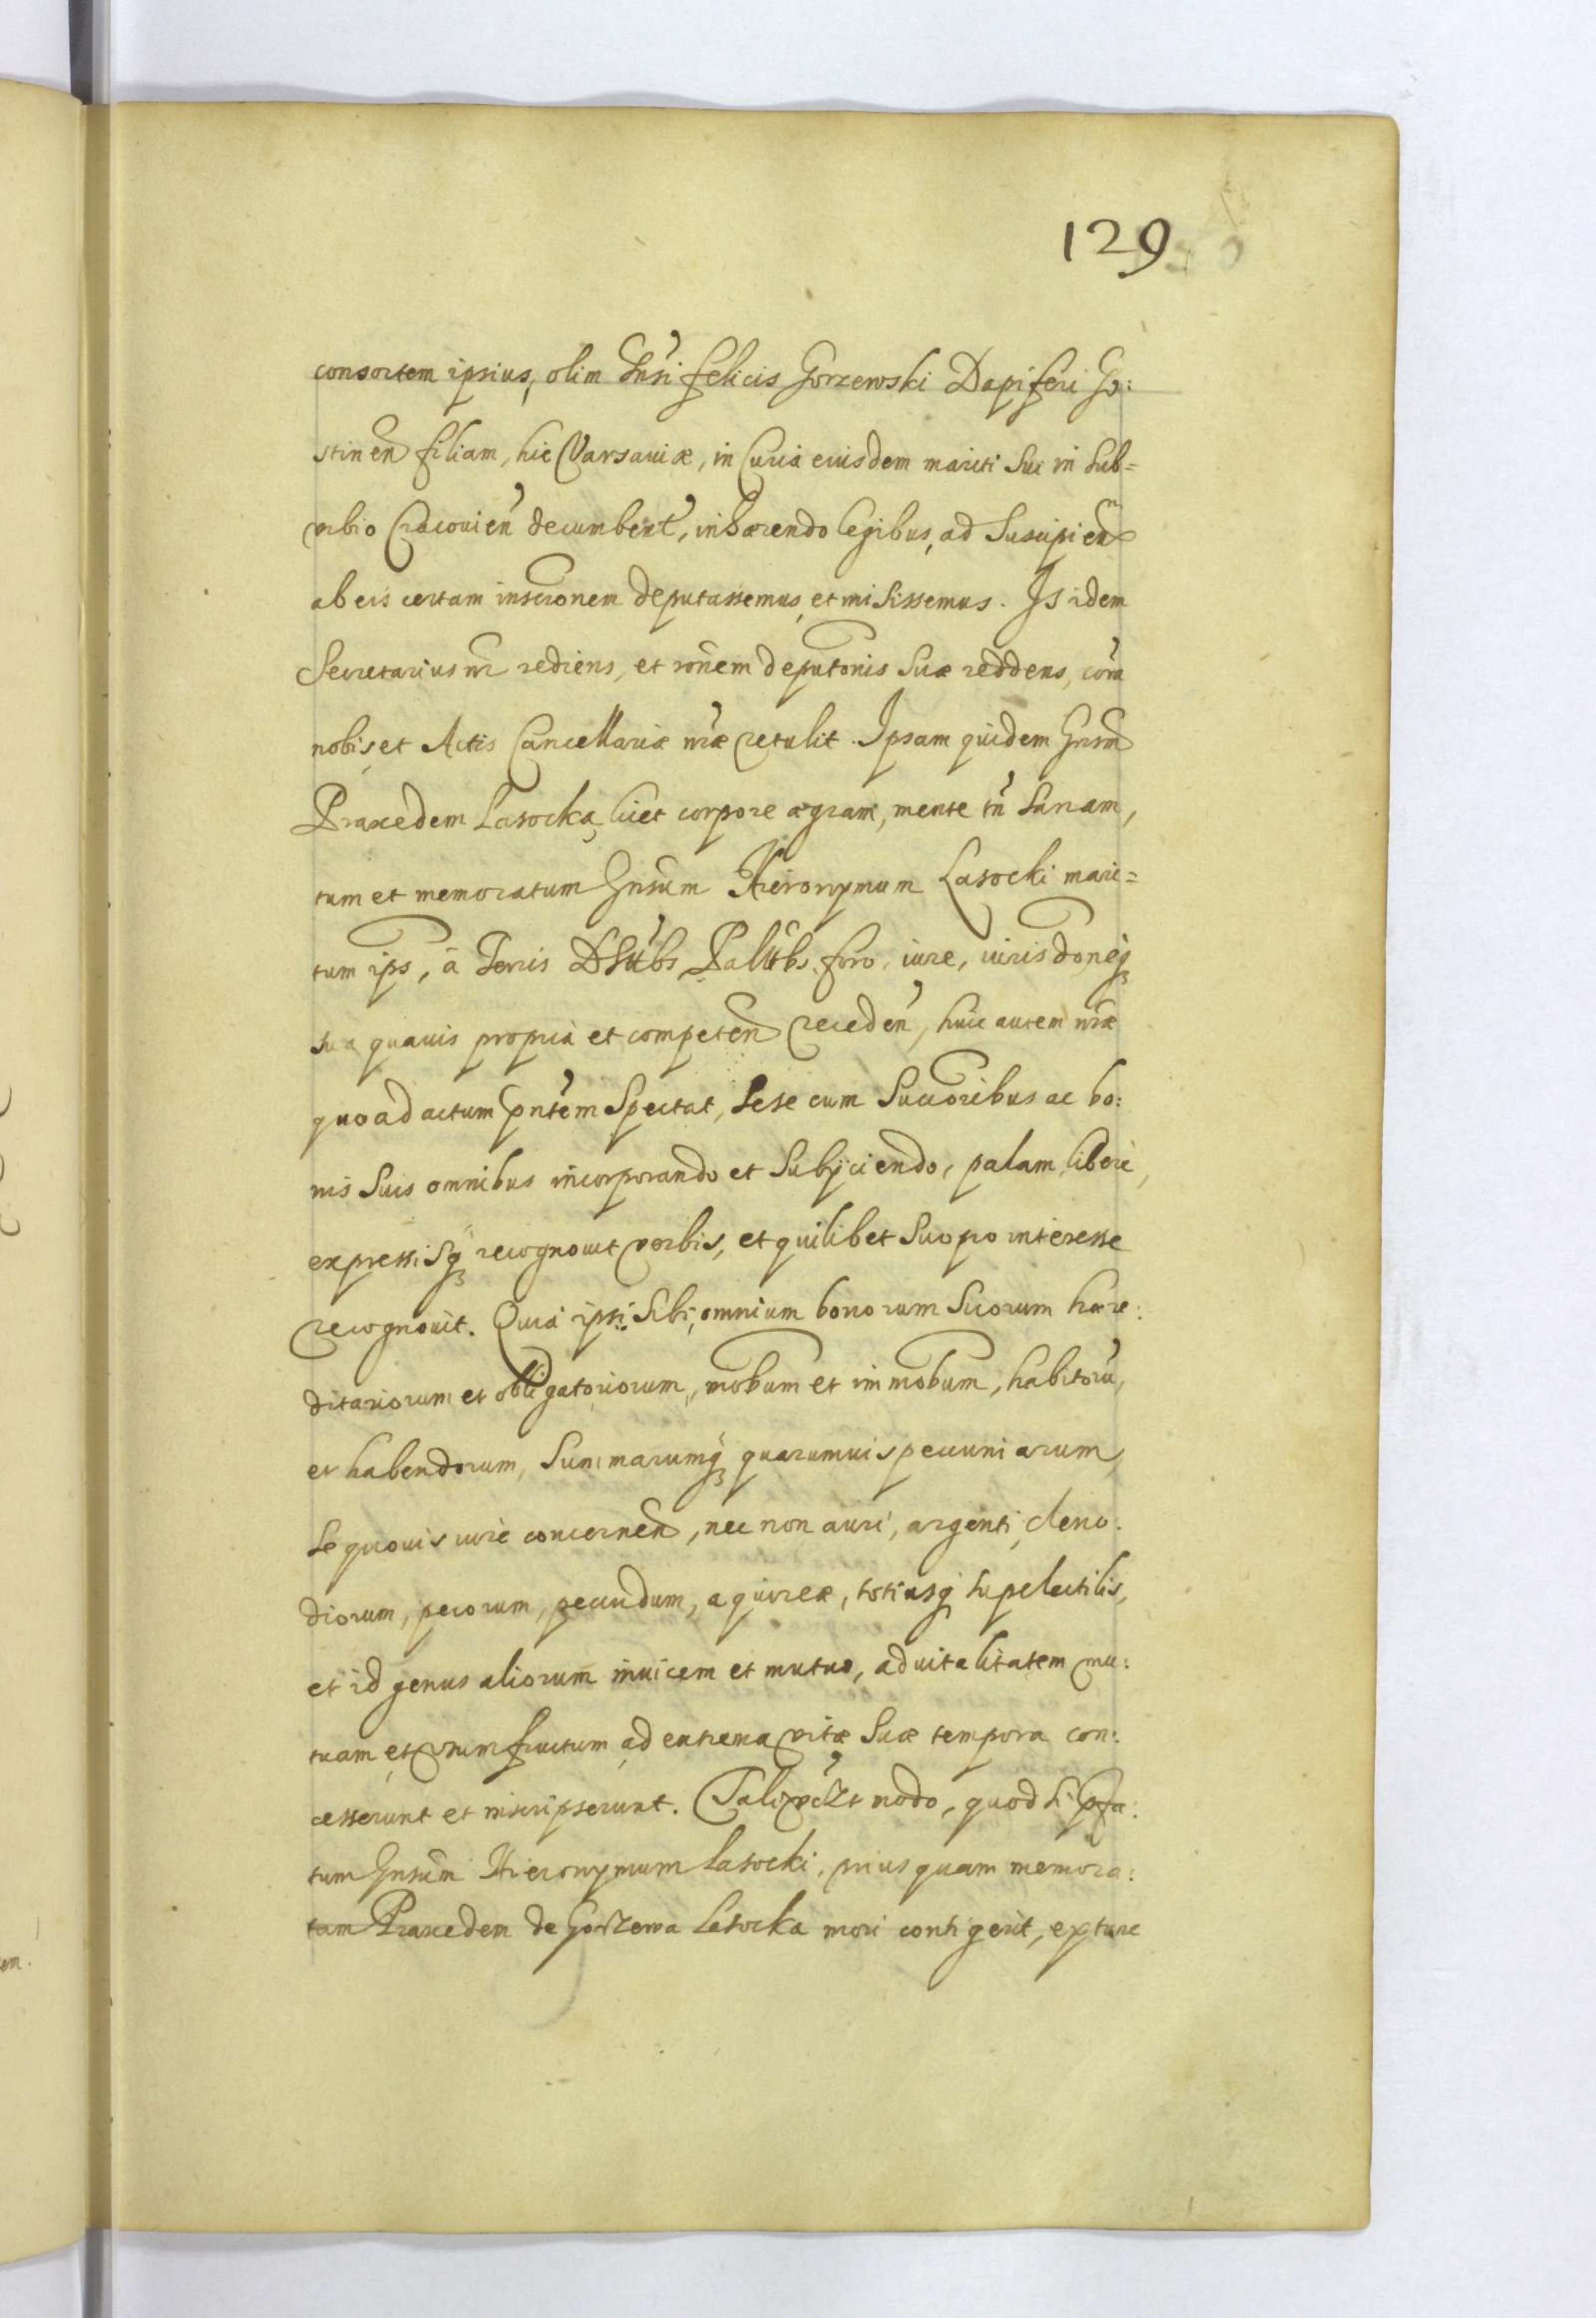 129
consortem ipsius, olim Gnsi Felicis Gorzewski Dapiferi Go:
stinen filiam, hic Varsauiæ, in Curia eiusdem mariti sui in Sub=
vrbio Cracouien decumbent, inhærendo legibus, ad Suscipien
ab eis certam inscronem deputassemus, et misissemus. Is idem
Secretarius nr rediens, et ronem deputonis Suæ reddens, cora
nobis, et Actis Cancellariæ nræ retulit. Ipsam quidem Gnsm
Praxedem Lasocka, licet corpore ægram, mente tn Sanam,
tum et memoratum Gnsum Hieronymum Lasocki mari=
tum ips, à Terris Palatbs, foro, iure, iurisdoneq
sua quauis propria et competen receden, huic autem nræ
quoad actum pntem Spectat, Sese cum Succoribus ac bo:
nis Suis omnibus incorporando et Subijciendo, palam, libere,
expressisq recognouit verbis, et quilibet Suo pro interesse
recognouit. Quia ipsi Sibi, omnium bonorum Suorum hære:
ditariorum et obligatoriorum, mobum et immobum, habitoru,
et habendorum, Summarumq quarumuis pecuniarum,
Se quouis iure concernen, nec non auri, argenti, cleno:
diorum, pecorum, pecudum, æquireæ, totiusq Supelectilis,
et id genus aliorum inuicem et mutuo, aduitalitatem mu:
tuam, et vsumfructum ad extrema vitæ Suæ tempora con:
cesserunt et inscripserunt. Tali vclt modo, quod si præfa:
tum Gnsum Hieronymum Lasocki, prius quam memora:
tam Praxedem de Gorzewa Lasocka mori contigerit, ex tunc